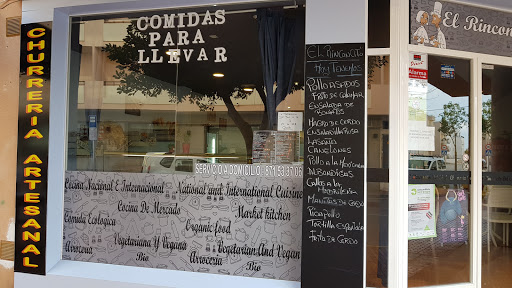 CHURRERIA ARTESANAL
COMIDAS
PARA
LLEVAR
SERVICIO A DOMICILIO: 871 53 37 06
Cocina Nacional E Internacional
Cocina De Mercado
Comida Ecologica
Vegetariana Y Vegana
Arroceria
Bio
National and International Cuisine
Market kitchen
Organic food
Vegetarian And Vegan
Arroceria
Bio
EL RINCONCITO
Hoy Tenemos
Pollo Asados
Frito de Calamar
Ensalada de
Magro de Cerdo
Ensaladilla Rusa
Lasaña
Canelones
Pollo a la Mexicana
Albondigas
Callos a la
Madrileña
Manitas de Cerdo
Pica Pollo
Tortilla Española
Frita de Cerdo
El Rincon
Alarma